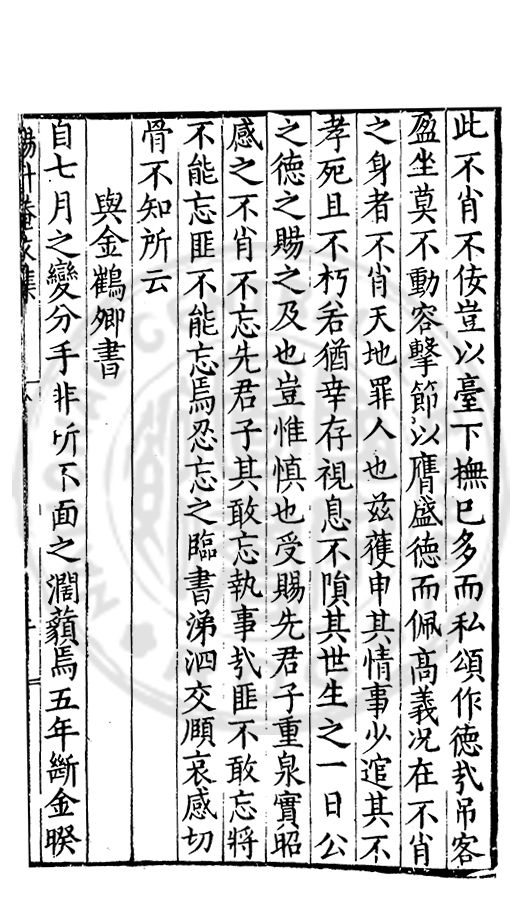 此不肖不佞豈以臺下撫已多而私頌作德㢤吊客
盈坐莫不動容擊節以膺盛德而佩髙義况在不肖
之身者不肖天地罪人也兹蒦申其情事少逭其不
孝死且不朽若猶幸存視息不隕其世生之一日公
之德之賜之及也豈惟慎也受賜先君子重泉實昭
感之不肖不忘先君子其敢忘執事㢤匪不敢忘將
不能忘匪不能忘焉忍忘之臨書涕泗交頤哀感切
骨不知所云
與金鶴卿書
自七月之變分手非所不面之濶藐焉五年斷金暌